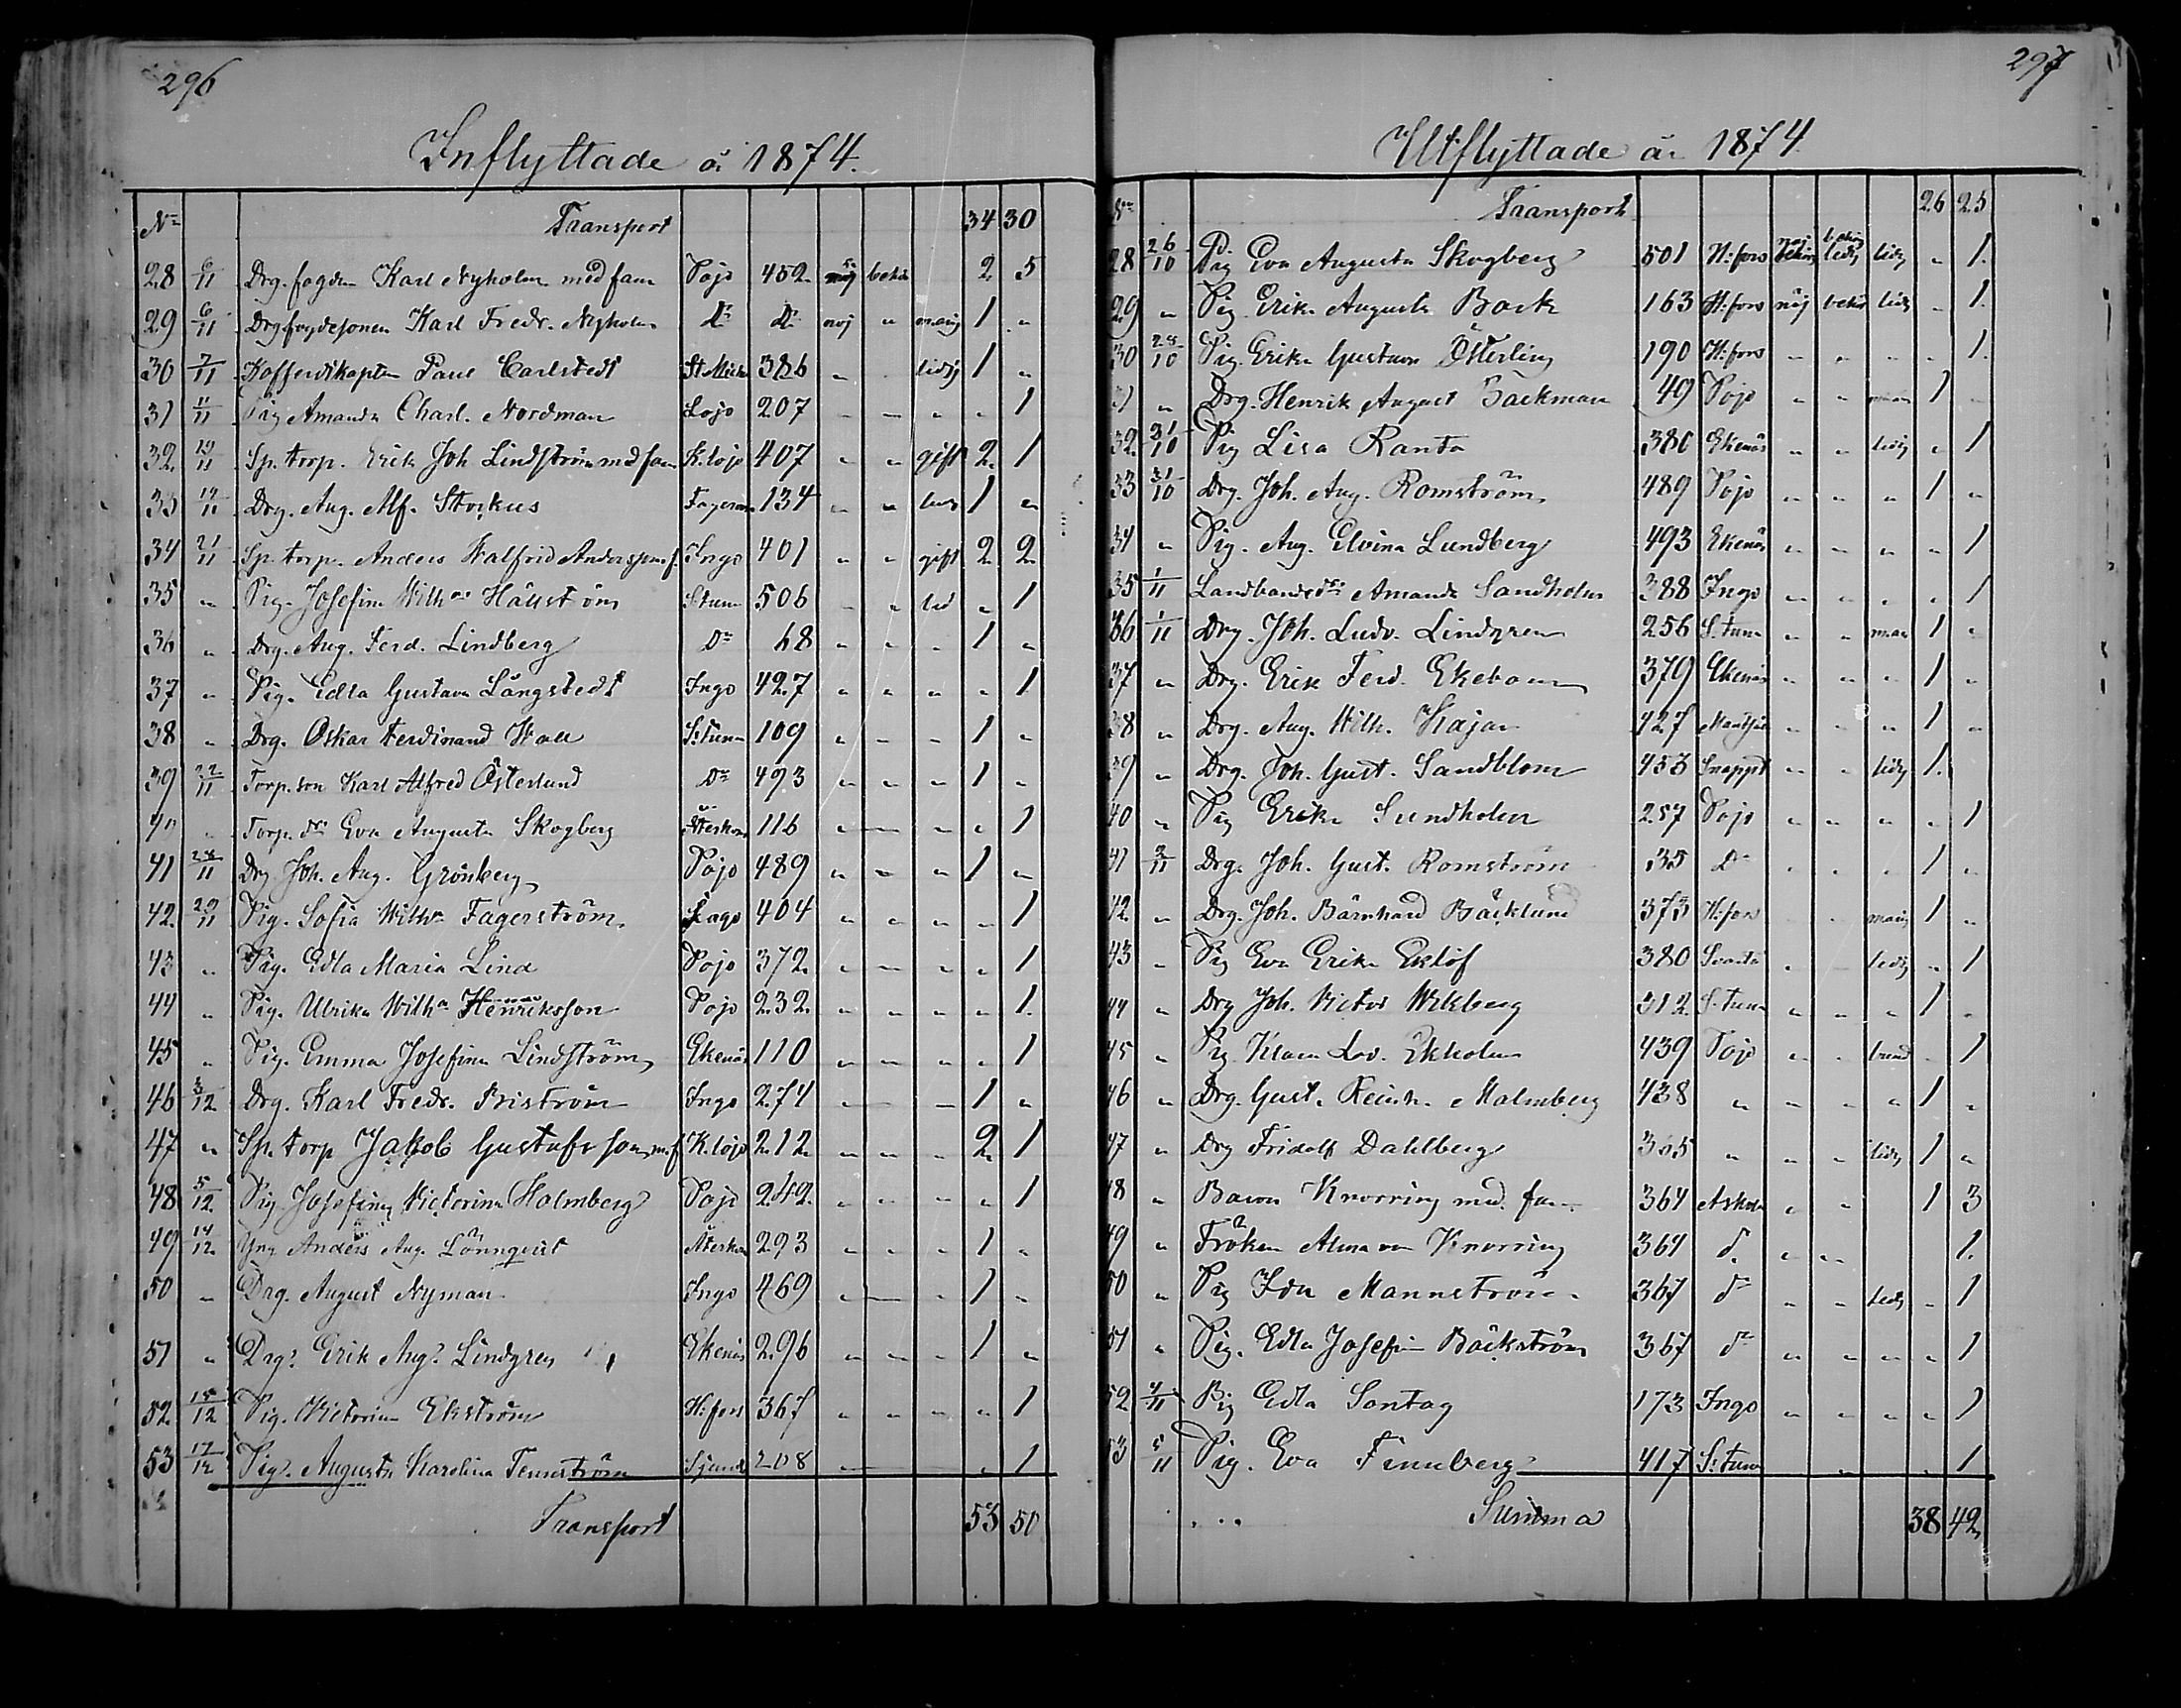 296
Inflyttade år 1874.
No Transport 34 30
28 6/11 Drg. fogden Karl Nyholm med fam Pojo 452 nöj bekr 2 5
29 6/11 Drg fogdesonen Karl Fredr. Nyholm Do Do nöj " 1 "
30 7/11 Kofferdikapten Paul Carlstedt St Mich 386 " ledig 1 "
31 11/11 Pig Amanda Charl. Nordman Lojo 207 " " " " 1
32 /11 Sp. torp. Erik Joh Lindström med fam K. lojo 407 " " gift 2 1
33 Drg. Aug. Alf. Storkus 134 " " 1 "
34 21/11 Sp. torp. Anders Walfrid Andersson m. f. Ingo 401 " " gift 2 2
35 " Pig. Josefina Wilh:na Hällström S:tuna 506 " " led " 1
36 " Drg. Aug. Ferd. Lindberg Do 68 " " " 1 "
37 " Pig. Edla Gustava Långstedt Ingo 427 " " " " 1
38 " Drg. Oskar Ferdinand Wall S:tuna 109 " " " 1 "
39 22/11 Torp. son Karl Alfred Österlund Do 493 " " " 1 "
40 " Torp. dr Eva Augusta Skogberg Återkom 116 " " " " 1
41 28/11 Drg Joh. Aug. Grönberg Pojo 489 " " " 1 "
42 29/11 Pig. Sofia Wilh:a Fagerström Ingo 404 " " " " 1
43 " Pig. Edla Maria Lind Pojo 372 " " " " 1
44 " Pig. Ulrika Wilh:a Henriksson Pojo 232 " " " " 1
45 " Pig. Emma Josefina Lindström Ekenäs 110 " " " " 1
46 3/12 Drg. Karl Fredr. Friström Ingo 274 " " 1 "
47 " Sp. torp Jakob Gustafsson m. f K. lojo 212 " " " 2 1
48 5/12 Pig Josefina Victorina Holmberg Pojo 242 " " " " 1
49 14/12 Yng Anders Aug. Lönnquist Återkom 293 " " " 1 "
50 " Drg. August Nyman Ingo 469 " " 1 "
51 " Drg. Erik Aug. Lindgren Ekenäs 296 " " " 1 "
52 15/12 Pig. Victorina Ekström H:fors 367 " " " " 1
53 17/12 Pig. Augusta Karolina Tennström Sjund 208 " " 1
Transport 53 50
297
Utflyttade år 1874
No Transport 26 25
28 26/10 Pig Eva Augusta Skogberg 501 H:fors ledig " 1
29 " Pig. Erika Augusta Bock 163 H:fors nöj bekr ledig " 1
30 28/10 Pig. Erika Gustava Österling 190 H:fors " " " " 1
31 " Drg. Henrik August Backman 49 Pojo " " 1 "
32 31/10 Pig Lisa Ranta 380 Ekenäs " " ledig " 1
33 31/10 Drg. Joh. Aug. Romström 489 Pojo " " " 1 "
34 " Pig. Aug. Elvina Lundberg 493 Ekenäs " " " " 1
35 1/11 Amanda Sandholm 388 Ingo " " " " 1
36 1/11 Drg. Joh. Ludv. Lindgren 256 S. tuna " " 1 "
37 " Drg. Erik Ferd. Ekebom 379 Ekenäs " " " 1 "
38 " Drg. Aug. Wilh. Kajan 427 " " " 1 "
39 " Drg. Joh. Gust. Sandblom 453 Snappt " " ledig 1
40 " Pig Erika Sundholm 257 Pojo " " " " 1
41 2/11 Drg. Joh. Gust. Romström 35 Do " " " 1 "
42 " Drg. Joh. Bärnhard Bäcklund 373 H:fors " " 1 "
43 " Pig Eva Erika Eklöf 380 " " ledig " 1
44 " Drg Joh. Victor Wikberg 312 S. tuna " " " 1 "
45 " Pig. Klara Lov. Ekholm 439 Pojo " " " 1
46 " Drg. Gust. Reinh. Malmberg 438 " " " " 1 "
47 " Drg Fridolf Dahlberg 365 " " " ledig 1 "
48 " Baron Knorring med fam. 364 Askola " " 1 3
49 " Fröken Alma von Knorring 364 do " " 1
50 " Pig Ida Mannström 367 do " " ledig " 1
51 " Pig. Edla Josefin Bäckström 367 do " " " " 1
52 4/11 Pig Edla Sontag 173 Ingo " " " " 1
53 5/11 Pig. Eva Finnberg 417 S:tuna " " 1
Summa 38 42